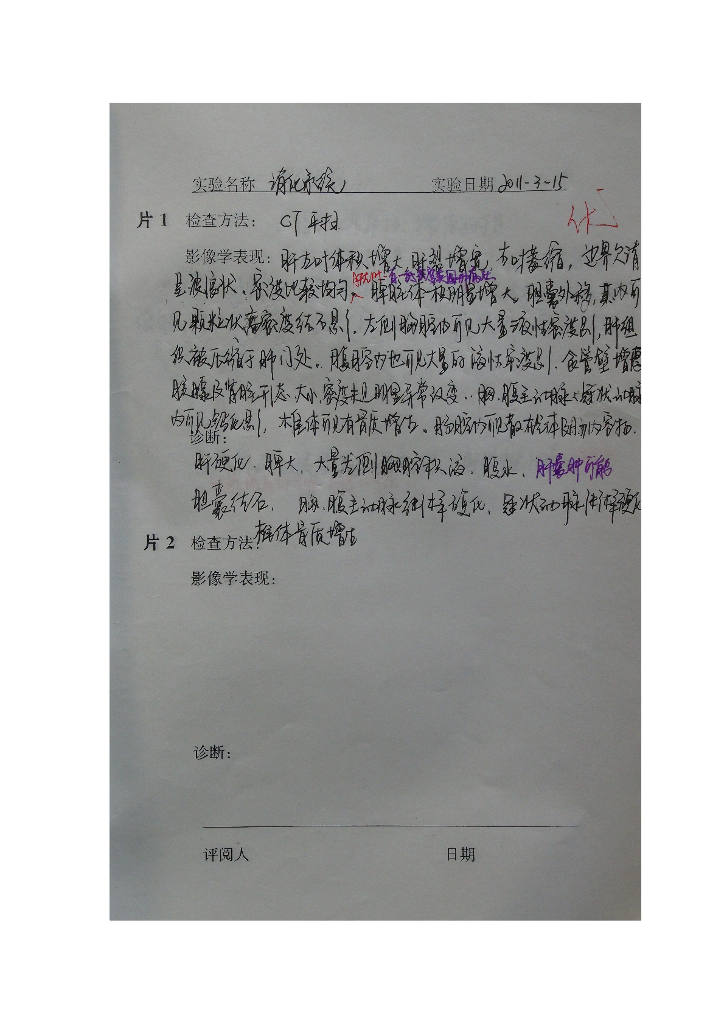 实验名称 消化系统1 实验日期 2011-3-15
优
片1 检查方法: CT平扫
影像学表现: 肝左叶体积增大,肝裂增宽,右叶萎缩,边界欠清
呈波浪状、密度比较均匀。脾脏体积明显增大,胆囊外移,其内可
见颗粒状高密度结石影,左侧胸腔内可见大量液性密度影,肺组
织被压缩于肺门处。腹腔内也可见大量的液性密度影。食管壁增厚
胰腺及肾脏形态、大小、密度未见明显异常改变。胸、腹主动脉、冠状动脉
内可见钙化影,椎体可见有骨质增生。肠腔内可见
诊断:
肝硬化、脾大、大量左侧胸腔积液、腹水、肝囊肿可能
胆囊结石、胸、腹主动脉粥样硬化、冠状动脉粥样硬化
椎体骨质增生
片2 检查方法:
影像学表现:
诊断:
评阅人 日期